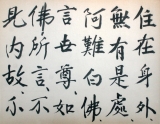 住在身外
無有是處
阿難白佛
言世尊如
佛所言不
見內故不